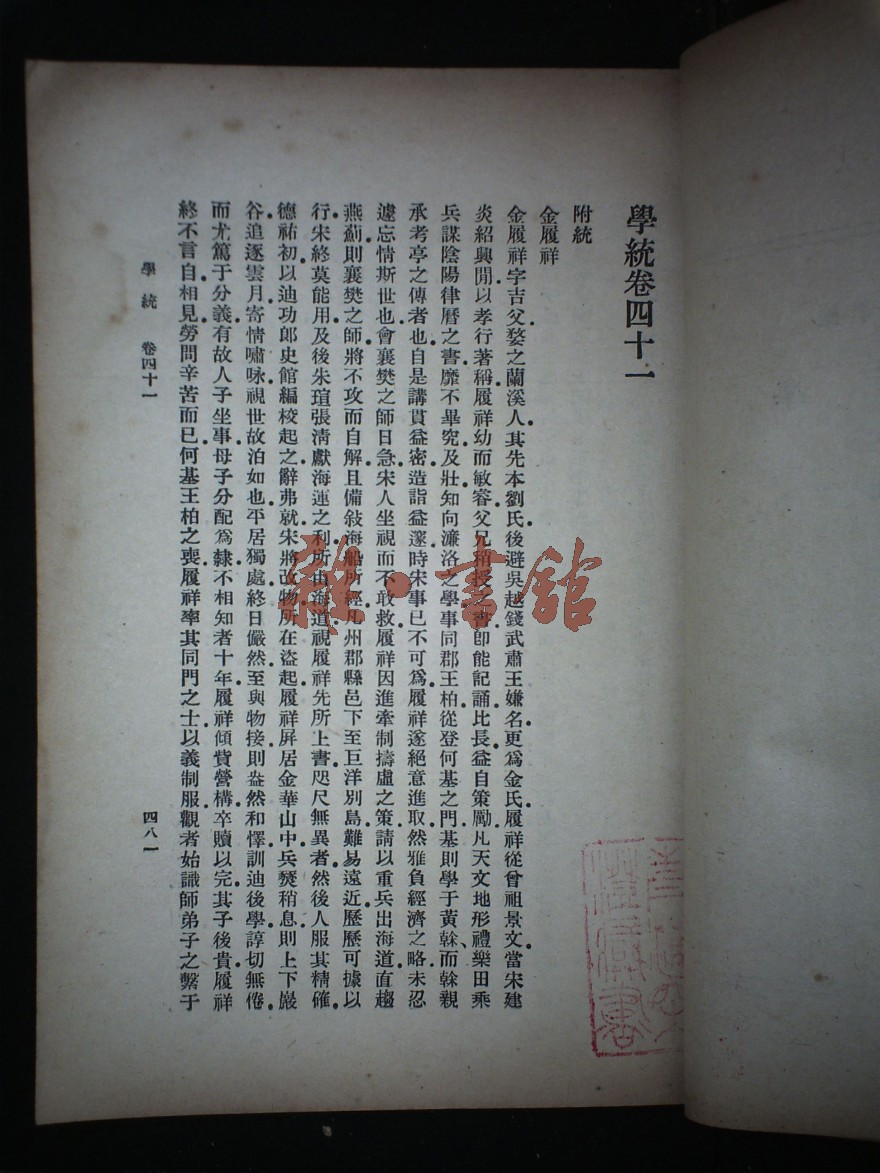 學統卷四十一
附統
金履祥
金履祥字吉父婺之蘭溪人其先本劉氏後避吳越錢武肅王嫌名更爲金氏履祥從曾祖景文當宋建
炎紹興閒以孝行著稱履祥幼而敏睿父兄稍授之書卽能記誦比長益自策勵凡天文地形禮樂田乘
兵謀陰陽律曆之書靡不畢究及壯知向濂洛之學事同郡王柏從登何基之門基則學于黃榦而榦親
承考亭之傳者也自是講貫益密造詣益邃時宋事已不可爲履祥遂絕意進取然雅負經濟之略未忍
遽忘情斯世也會襄樊之師日急宋人坐視而不敢救履祥因進牽制擣虛之策請以重兵出海道直趨
燕薊則襄樊之師將不攻而自解且備敍海舶所經凡州郡縣邑下至巨洋別島難易遠近歷歷可據以
行宋終莫能用及後朱瑄張淸獻海運之利所由海道視履祥先所上書咫尺無異者然後人服其精確
德祐初以迪功郎史館編校起之辭弗就宋將改物所在盜起履祥屏居金華山中兵燹稍息則上下巖
谷追逐雲月寄情嘯咏視世故泊如也平居獨處終日儼然至與物接則盎然和懌訓迪後學諄切無倦
而尤篤于分義有故人子坐事母子分配爲隸不相知者十年履祥傾貲營構卒贖以完其子後貴履祥
終不言自相見勞問辛苦而已何基王柏之喪履祥率其同門之士以義制服觀者始識師弟子之繫于
學統 卷四十一
四八一
雜·書館